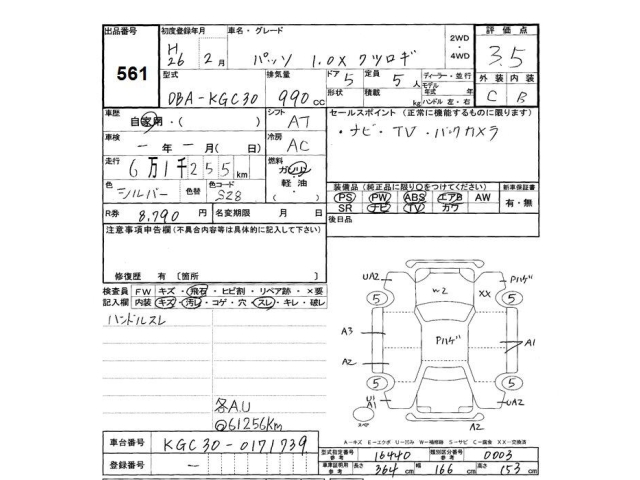 出品番号 初度登録年月 車名・グレード 2WD・4WD 評価点
561 H26 2月 パッソ 1.0X クツロギ 3.5
型式 排気量 ドア 5 定員 5人 ディーラー・並行 外装 内装
DBA-KGC30 990cc 形状 積載 kg モデル年式 年 ハンドル 左・右 C B
車歴 自家用・( ) シフト AT セールスポイント (正常に機能するものに限ります)
車検 ー年ー月(日) 冷房 AC ・ナビ・TV・バックカメラ
走行 6万1千255km 燃料 ガソリン 軽油・( )
色 シルバー 色替 色コード S28 装備品(純正品に限り○をつけてください) 新車保証書
PS PW ABS エアB AW 有・無
SR ナビ TV カワ
R券 8,790円 名変期限 月 日 後日品
注意事項申告欄(不具合内容等は具体的に記入して下さい)
修復歴 有 〔箇所 〕
検査員 FW キズ・飛石・ヒビ割・リペア跡・×要
記入欄 内装 キズ・汚れ・コゲ・穴・スレ・キレ・破レ
ハンドルスレ
各A.U
@61256Km
UA2 W2 XX Pハゲ
5 5
A3 Pハゲ A1
A2
5 5
U1 A1 UA2
スペア A2
A-キズ E-エクボ U-凹み W-補修跡 S-サビ C-腐食 XX-交換済
車台番号 KGC30-0171739
登録番号 ー
型式指定番号 参考 16440 類別区分番号 参考 0003
車庫証明用 参考 長さ 364cm 幅 166cm 高さ 153cm